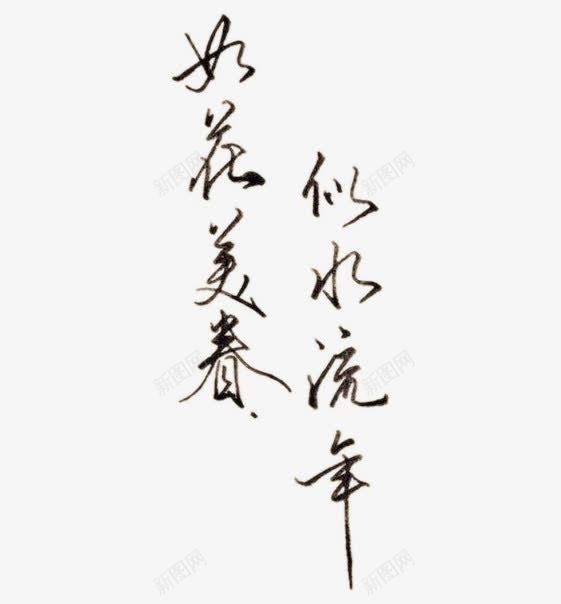 如花美眷.
似水流年
新图网
新图网
新图网
新图网
新图网
新图网